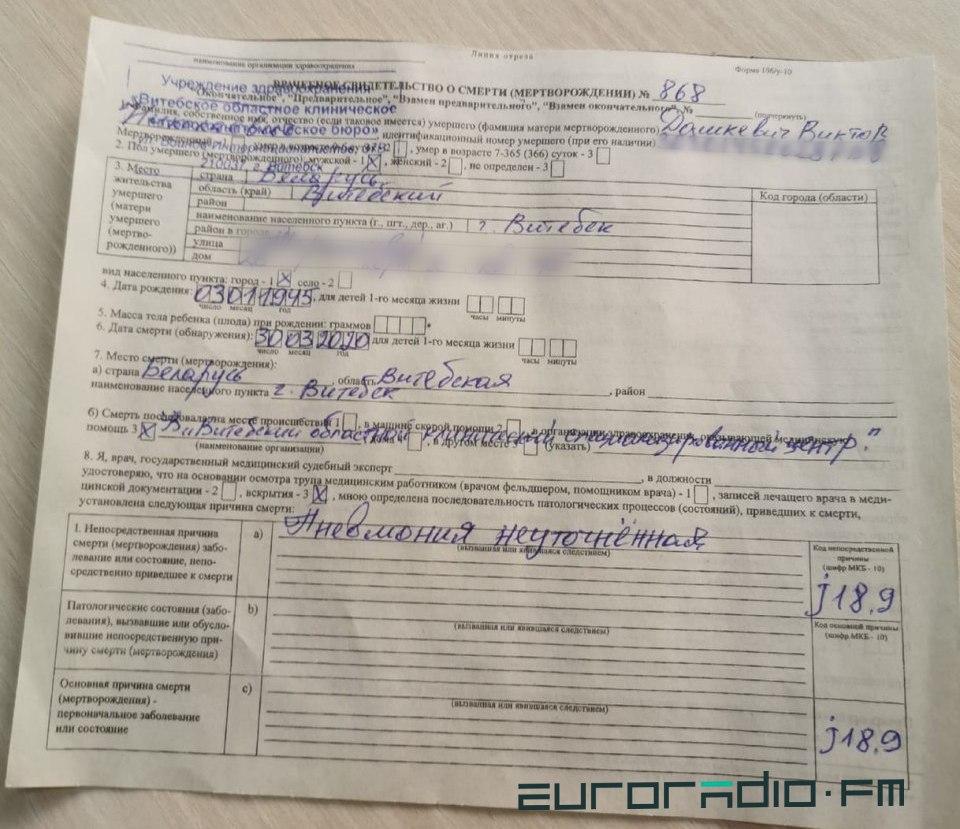 Линия отреза
наименование организации здравоохранения
Форма 106/у-10
Учреждение здравоохранения
ВРАЧЕБНОЕ СВИДЕТЕЛЬСТВО О СМЕРТИ (МЕРТВОРОЖДЕНИИ) № 868
"Окончательное", "Предварительное", "Взамен предварительного", "Взамен окончательного" №
(подчеркнуть)
«Витебское областное клиническое
бюро»
Фамилия, собственное имя, отчество (если таковое имеется) умершего (фамилия матери мертворожденного) Дашкевич Виктор
идентификационный номер умершего (при его наличии)
Мертворожденный
, умер в возрасте 7-365 (366) суток - 3
2. Пол умершего (мертворожденного): мужской - 1 X, женский - 2 , не определен - 3
210037, г. Витебск
3. Место жительства умершего (матери умершего (мертворожденного))
страна Беларусь
область (край) Витебский
район
наименование населенного пункта (г., пгт., дер., аг.) г. Витебск
район в городе
улица
дом
Код города (области)
вид населенного пункта: город - 1 X село - 2
4. Дата рождения: 03011945, для детей 1-го месяца жизни
число месяц год часы минуты
5. Масса тела ребенка (плода) при рождении: граммов
6. Дата смерти (обнаружения): 30032020 для детей 1-го месяца жизни
число месяц год часы минуты
7. Место смерти (мертворождения):
а) страна Беларусь, область Витебская
наименование населенного пункта г. Витебск, район
б) Смерть последовала: на месте происшествия 1 , в машине скорой помощи 2 , в организации здравоохранения, оказывающей медицинскую
помощь 3 X "Витебский областной клинический специализированный центр."
, в другом месте 5 (указать)
(наименование организации)
8. Я, врач, государственный медицинский судебный эксперт , в должности
удостоверяю, что на основании осмотра трупа медицинским работником (врачом фельдшером, помощником врача) - 1 , записей лечащего врача в меди-
цинской документации - 2 , вскрытия - 3 X, мною определена последовательность патологических процессов (состояний), приведших к смерти,
установлена следующая причина смерти:
I. Непосредственная причина
смерти (мертворождения) забо-
левание или состояние, непо-
средственно приведшее к смерти
а) Пневмония неуточнённая
(вызванная или явившаяся следствием)
Код непосредственной
причины
(шифр МКБ - 10)
j18.9
Патологические состояния (забо-
левания), вызвавшие или обусло-
вившие непосредственную при-
чину смерти (мертворождения)
b)
(вызванная или явившаяся следствием)
Код основной причины
(шифр МКБ - 10)
Основная причина смерти
(мертворождения) -
первоначальное заболевание
или состояние
c)
(вызванная или явившаяся следствием)
j18.9
EURORADIO.FM